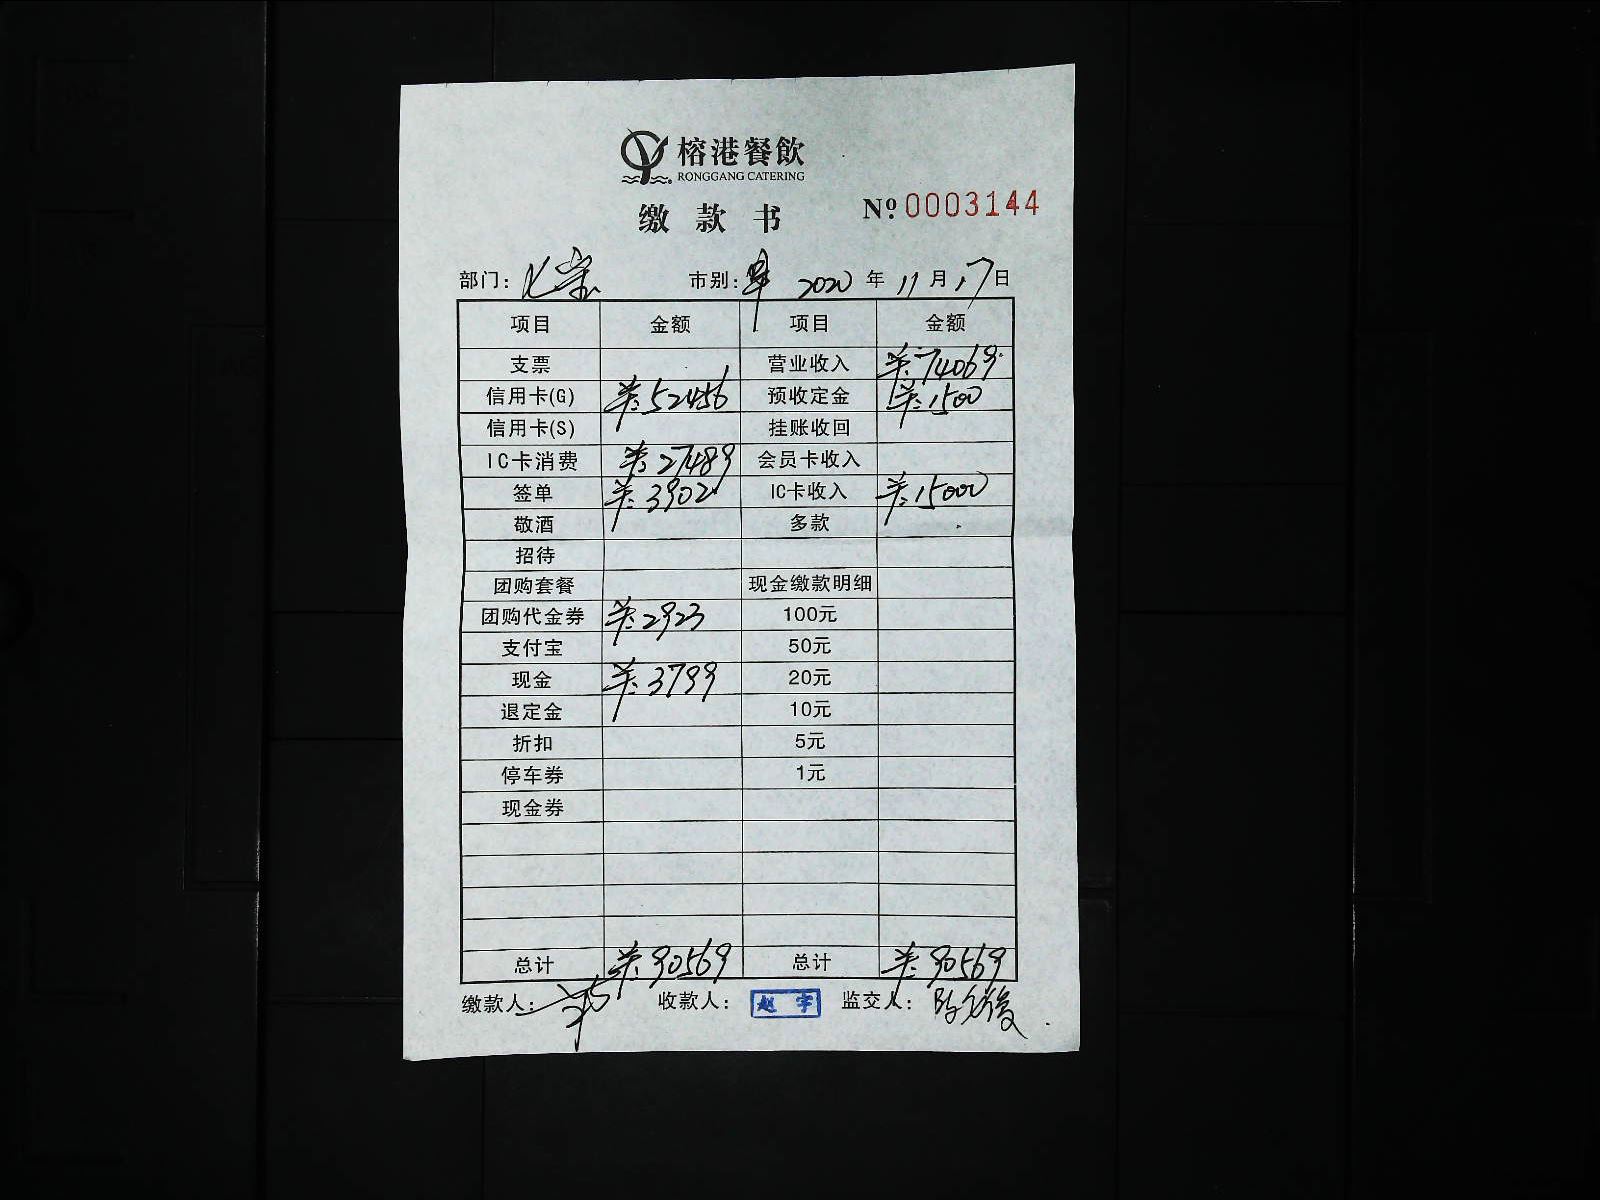 榕港餐飲
RONGGANG CATERING
缴款书
№ 0003144
部门: 市别: 早 2020 年 11 月 17 日
项目 金额 项目 金额
支票 营业收入 ¥:74069.
信用卡(G) ¥:52456 预收定金 ¥:1500
信用卡(S) 挂账收回
IC卡消费 ¥:27489 会员卡收入
签单 ¥:3902 IC卡收入 ¥:15000
敬酒 多款
招待
团购套餐 现金缴款明细
团购代金券 ¥:2923 100元
支付宝 50元
现金 ¥:3799 20元
退定金 10元
折扣 5元
停车券 1元
现金券
总计 ¥:90569 总计 ¥:90569
缴款人: 收款人: 赵宇 监交人: